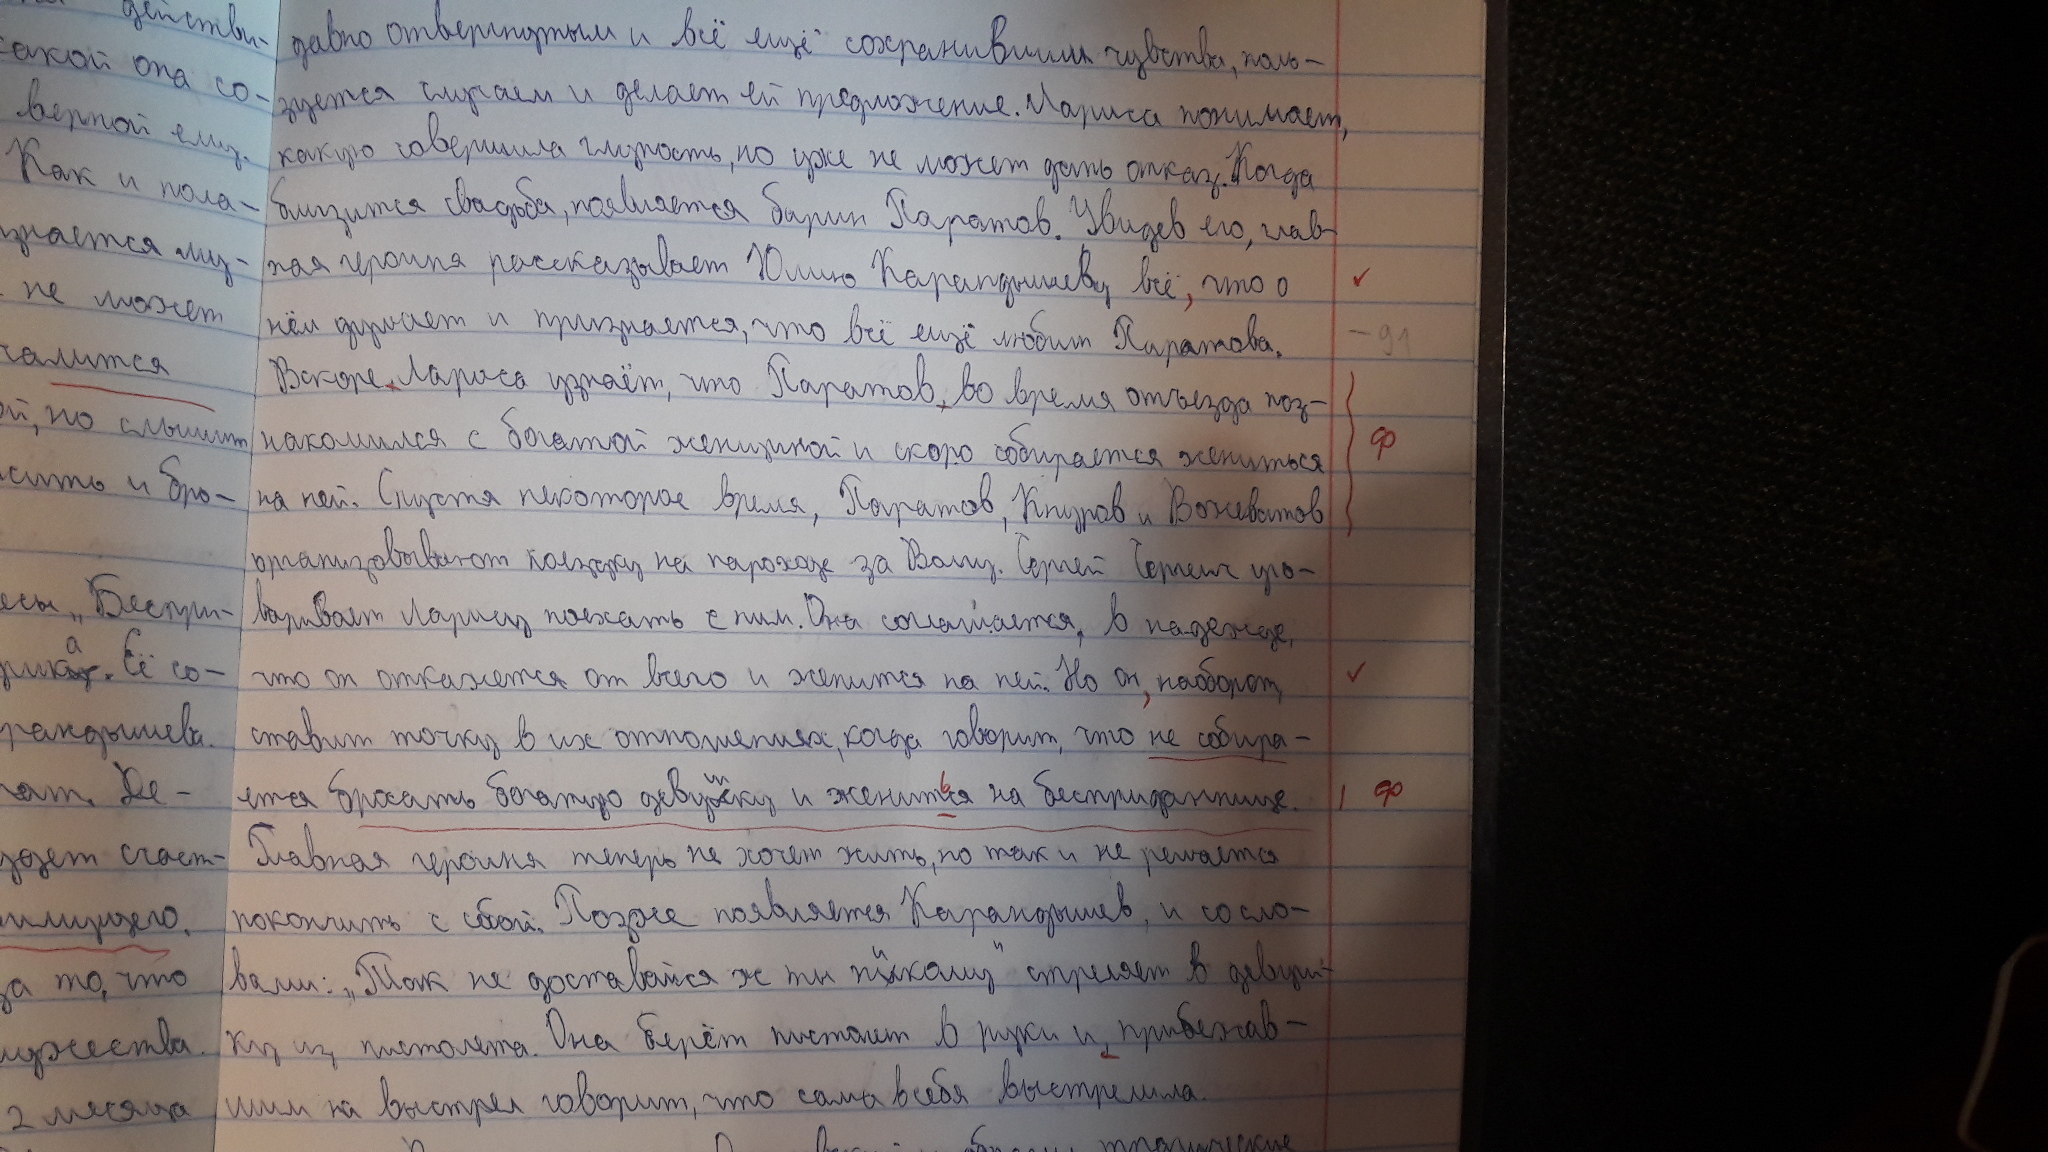 действи-
какой она со-
верной ему.
Как и пола-
знается му-
не может
чалится
ой, но слышит
сить и бро-
есы „Беспри-
рика. Её со-
рандышева.
гат. Де-
дёт счаст-
за то, что
мужества.
2 месяца
давно отвергнутым и всё ещё сохранившим чувства, поль-
зуется случаем и делает ей предложение. Лариса понимает,
какую совершила глупость, но уже не может дать отказ. Когда
близится свадьба, появляется барин Паратов. Увидев его, глав-
ная героиня рассказывает Юлию Карандышеву всё, что о
нём думает и признается, что всё ещё любит Паратова.
Вскоре, Лариса узнаёт, что Паратов, во время отъезда поз-
накомился с богатой женщиной и скоро собирается жениться
на ней. Спустя некоторое время, Паратов, Кнуров и Вожеватов
организовывают поездку на пароходе за Волгу. Сергей Сергеич уго-
варивает Ларису поехать с ним. Она соглашается, в надежде,
что он откажется от всего и женится на ней. Но он, наоборот,
ставит точку в их отношениях, когда говорит, что не собира-
ется бросать богатую девушку и женится на бесприданнице.
Главная героиня теперь не хочет жить, но так и не решается
покончить с собой. Позже появляется Карандышев, и со сло-
вами: „Так не доставайся ж ты никому" стреляет в девуш-
ку из пистолета. Она берёт пистолет в руки и, прибежав-
шим на выстрел говорит, что сама в себя выстрелила.
трагические